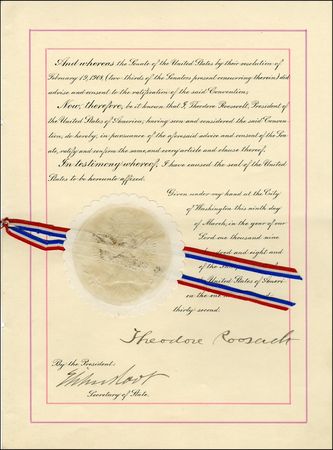 And whereas the Senate of the United States by their resolution of
February 19, 1908, (two-thirds of the Senators present concurring therein) did
advise and consent to the ratification of the said Convention;
Now, therefore, be it known that I, Theodore Roosevelt, President of
the United States of America, having seen and considered the said Conven-
tion, do hereby, in pursuance of the aforesaid advice and consent of the Sen-
ate, ratify and confirm the same, and every article and clause thereof.
In testimony whereof, I have caused the seal of the United
States to be hereunto affixed.
Given under my hand at the City
of Washington this ninth day
of March, in the year of our
Lord one thousand nine
hundred and eight and
of the
United States of Ameri-
in the one
thirty second.
Theodore Roosevelt
By the President:
Elihu Root
Secretary of State.